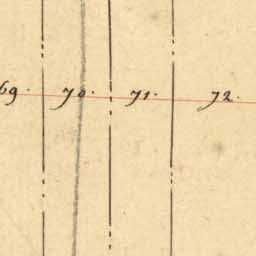 69. 70. 71. 72.